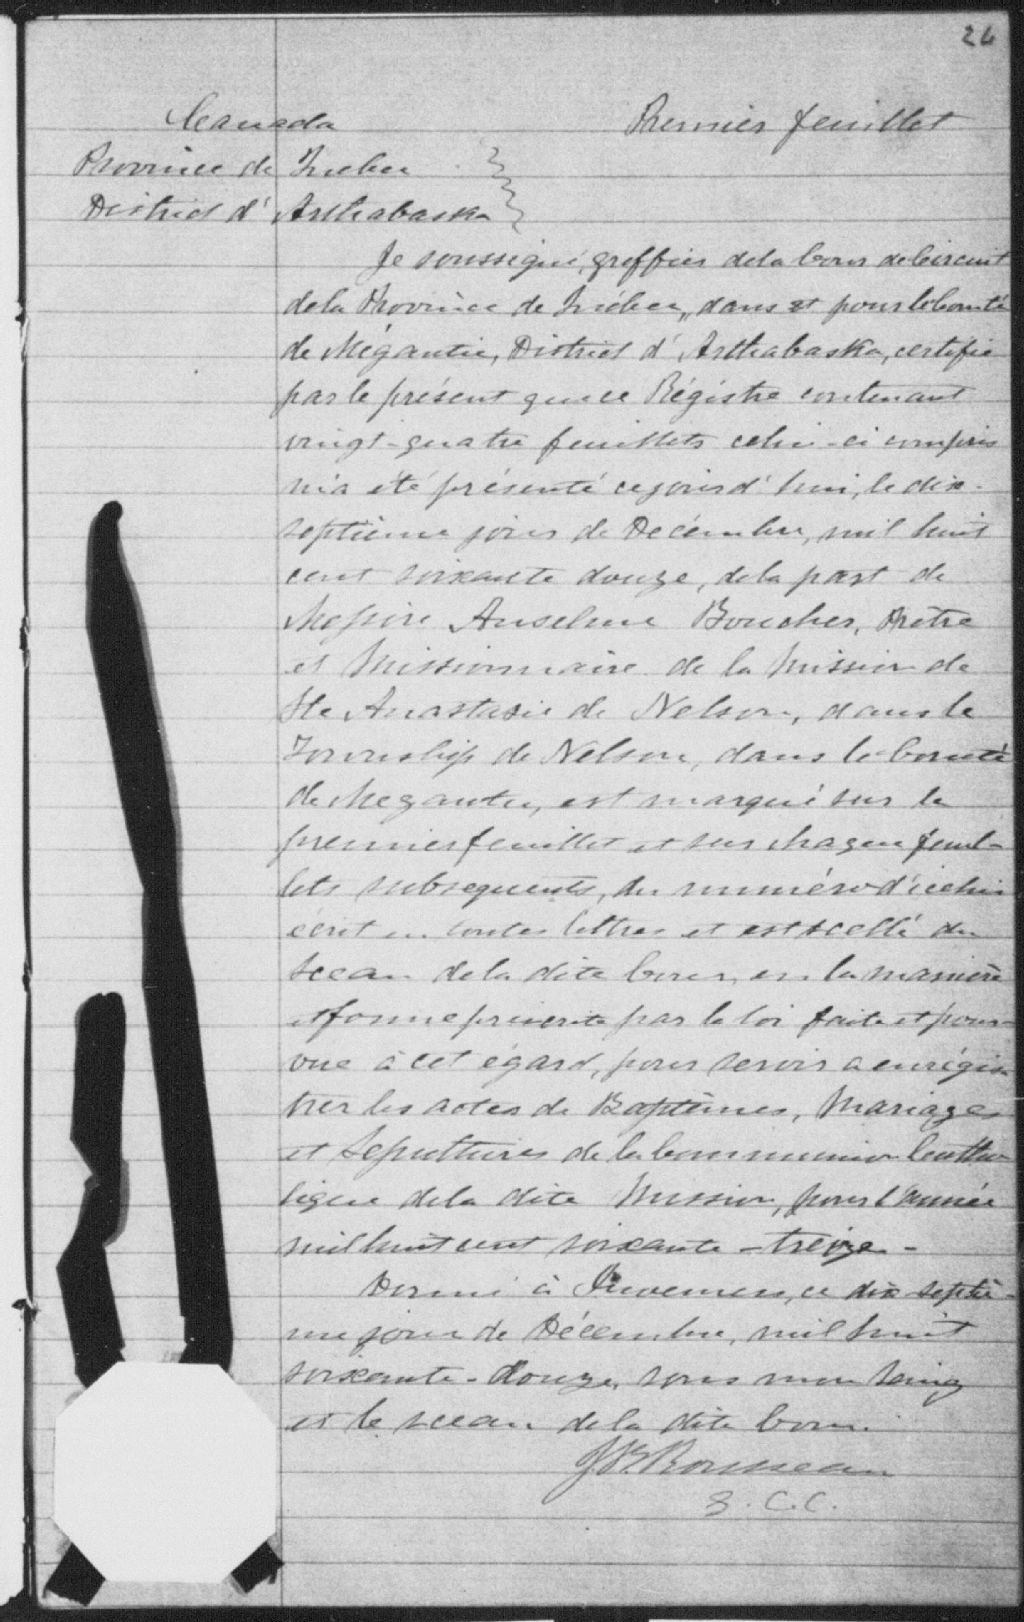 26
Canada Premier feuillet
Province de Québec
District d' Arthabaska
Je soussigné, greffier de la Cour de Circuit
de la Province de Québec, dans et pour le Comté
de Mégantic, District d' Arthabaska, certifie
par le présent que ce Régistre contenant
vingt-quatre feuillets celui-ci compris
m'a été présenté ce jourd'hui, le dix-
septième jour de Décembre, mil huit
cent soixante douze, de la part de
Messire Anselme Boucher, Prêtre
et Missionnaire de la Mission de
Ste Anastasie de Nelson, dans le
Township de Nelson, dans le Comté
de Megantic, est marqué sur le
premier feuillet et sur chaque feuil-
lets subsequents, du numéro d'icelui
écrit en toutes lettres et est scellé du
sceau de la dite Cour, en la manière
et forme prescrite par la loi faite et pour-
vue à cet égard, pour servir a enrégis-
trer les actes de Baptêmes, Mariages
et Sépultures de la Communion Catho
lique de la dite Mission, pour l'année
mil huit cent soixante-treize-
Donné à Inverness, ce dix septiè-
me jour de Décembre, mil huit
soixante-douze, sous mon seing
et le sceau de la dite Cour.
J.B. Rousseau
G. C. C.